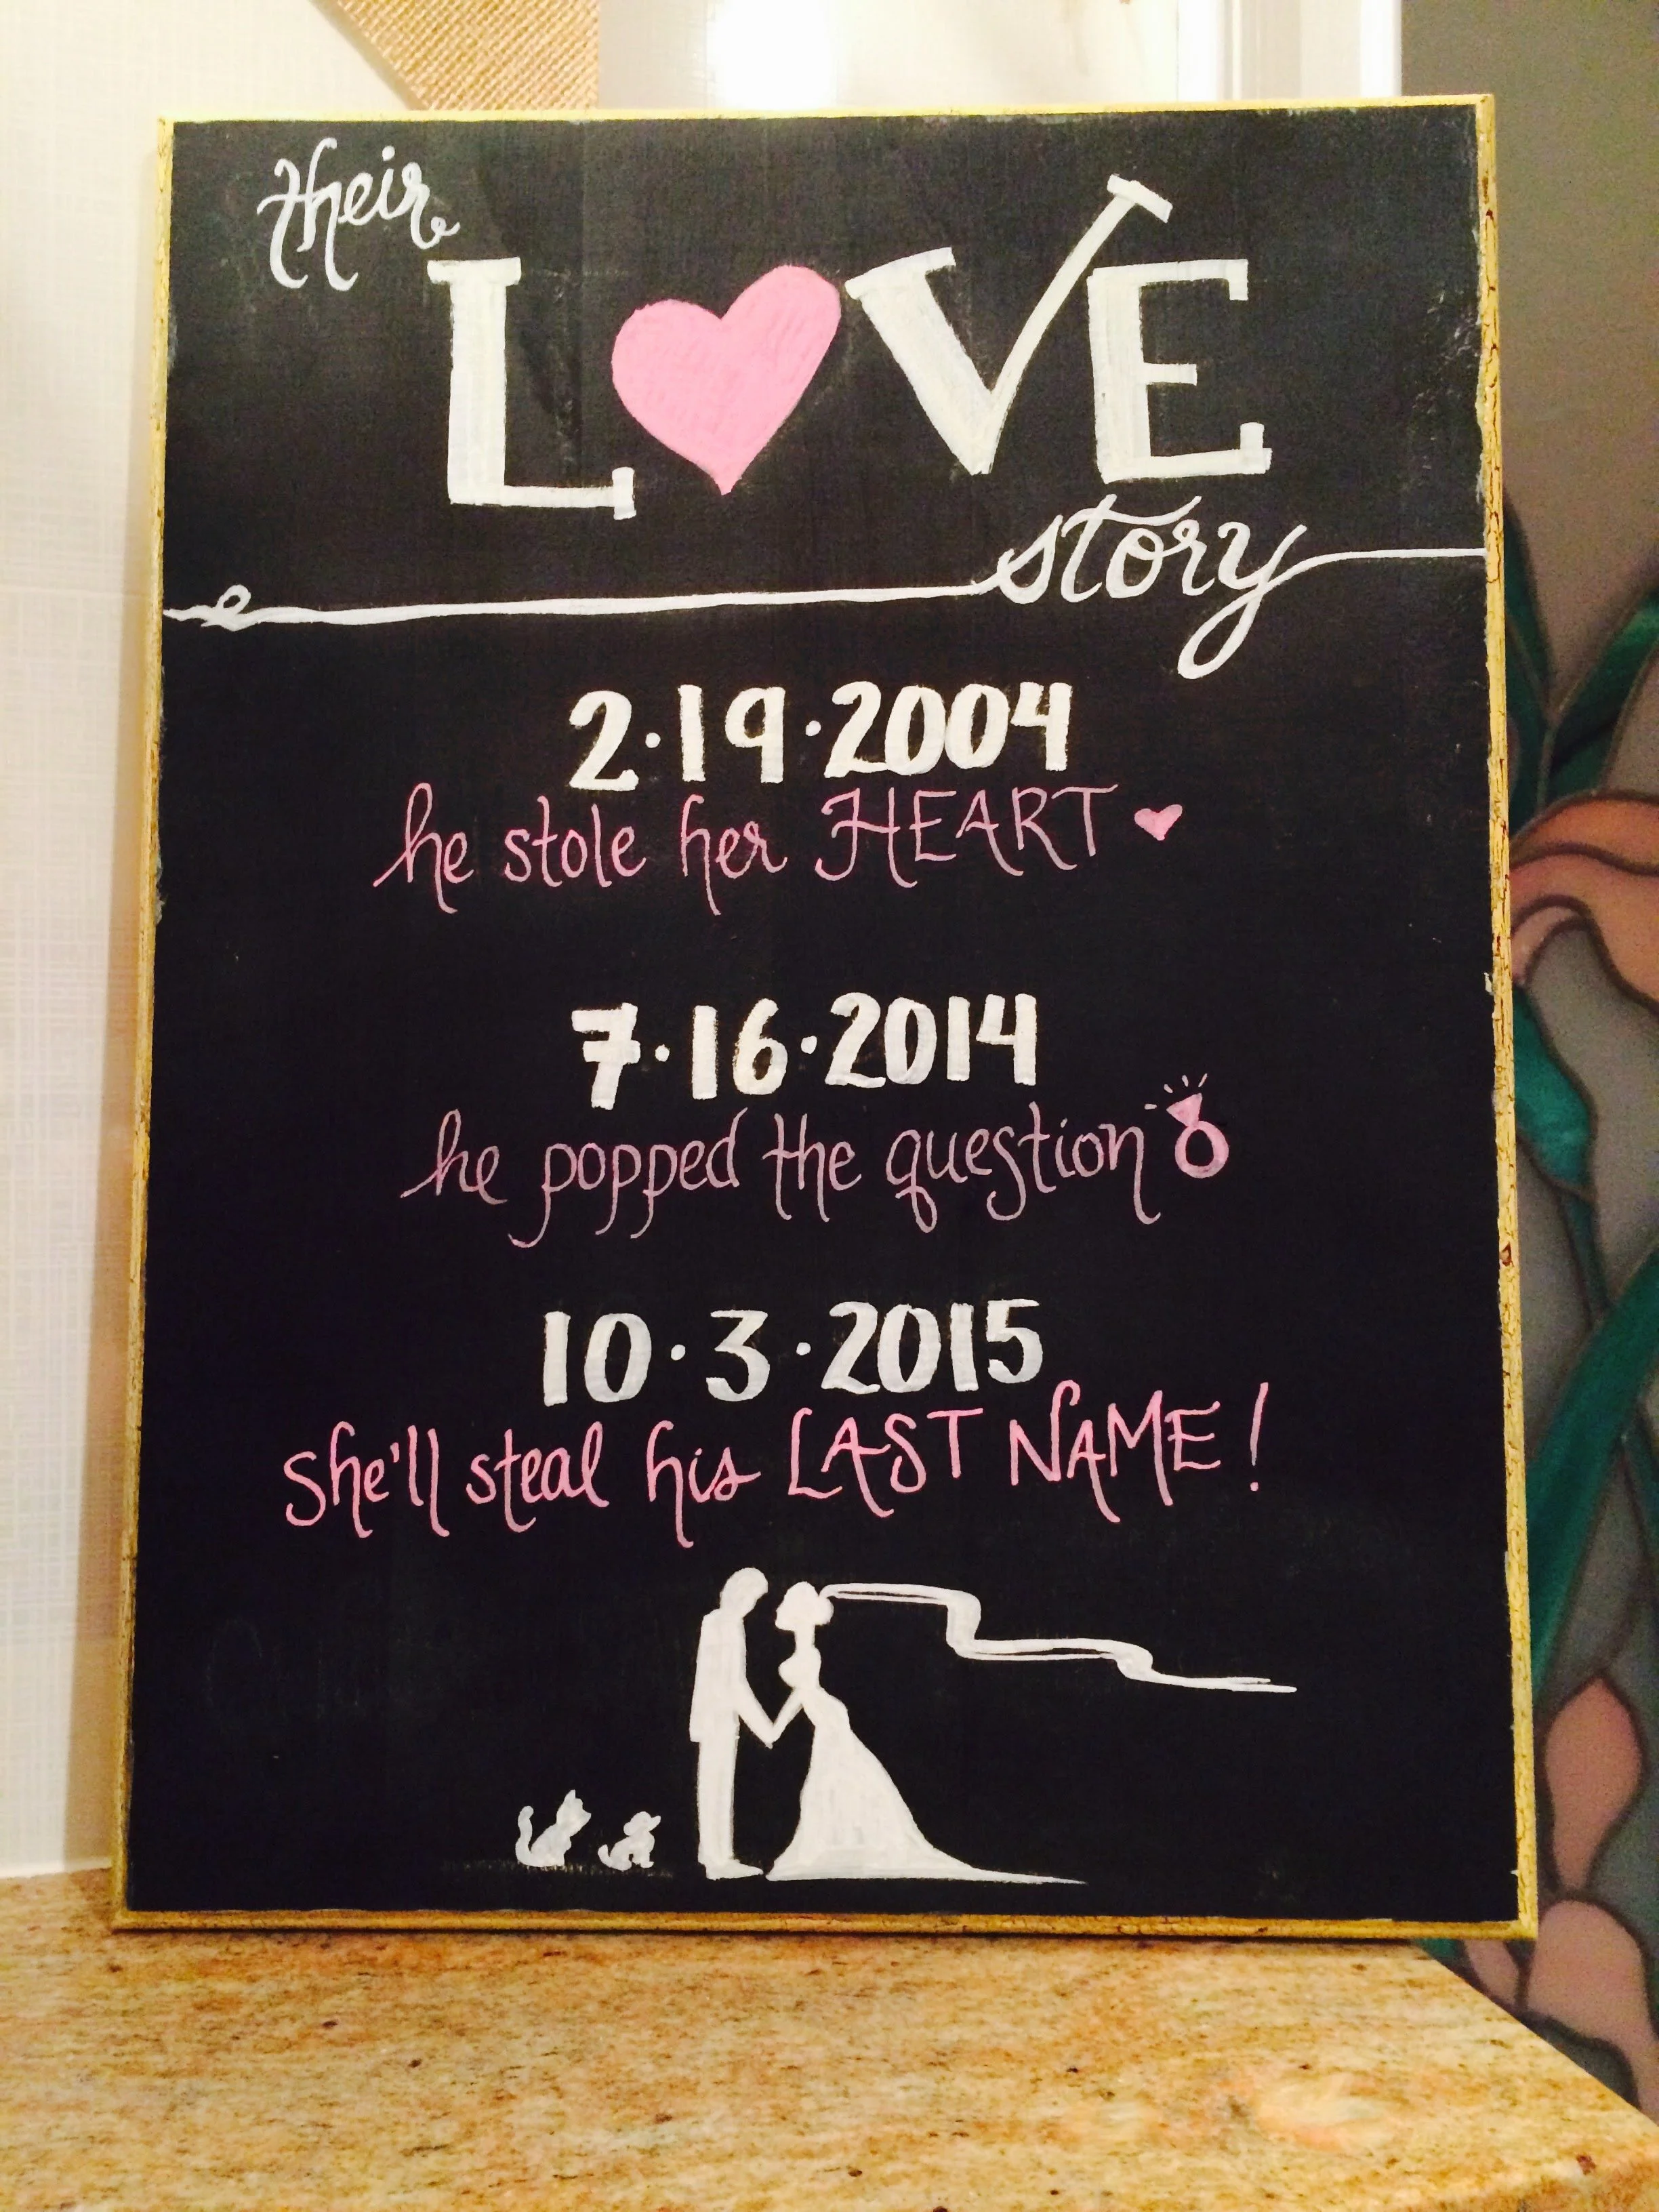 their
LOVE
story
2·19·2004
he stole her HEART
7·16·2014
he popped the question
10·3·2015
she'll steal his LAST NAME!